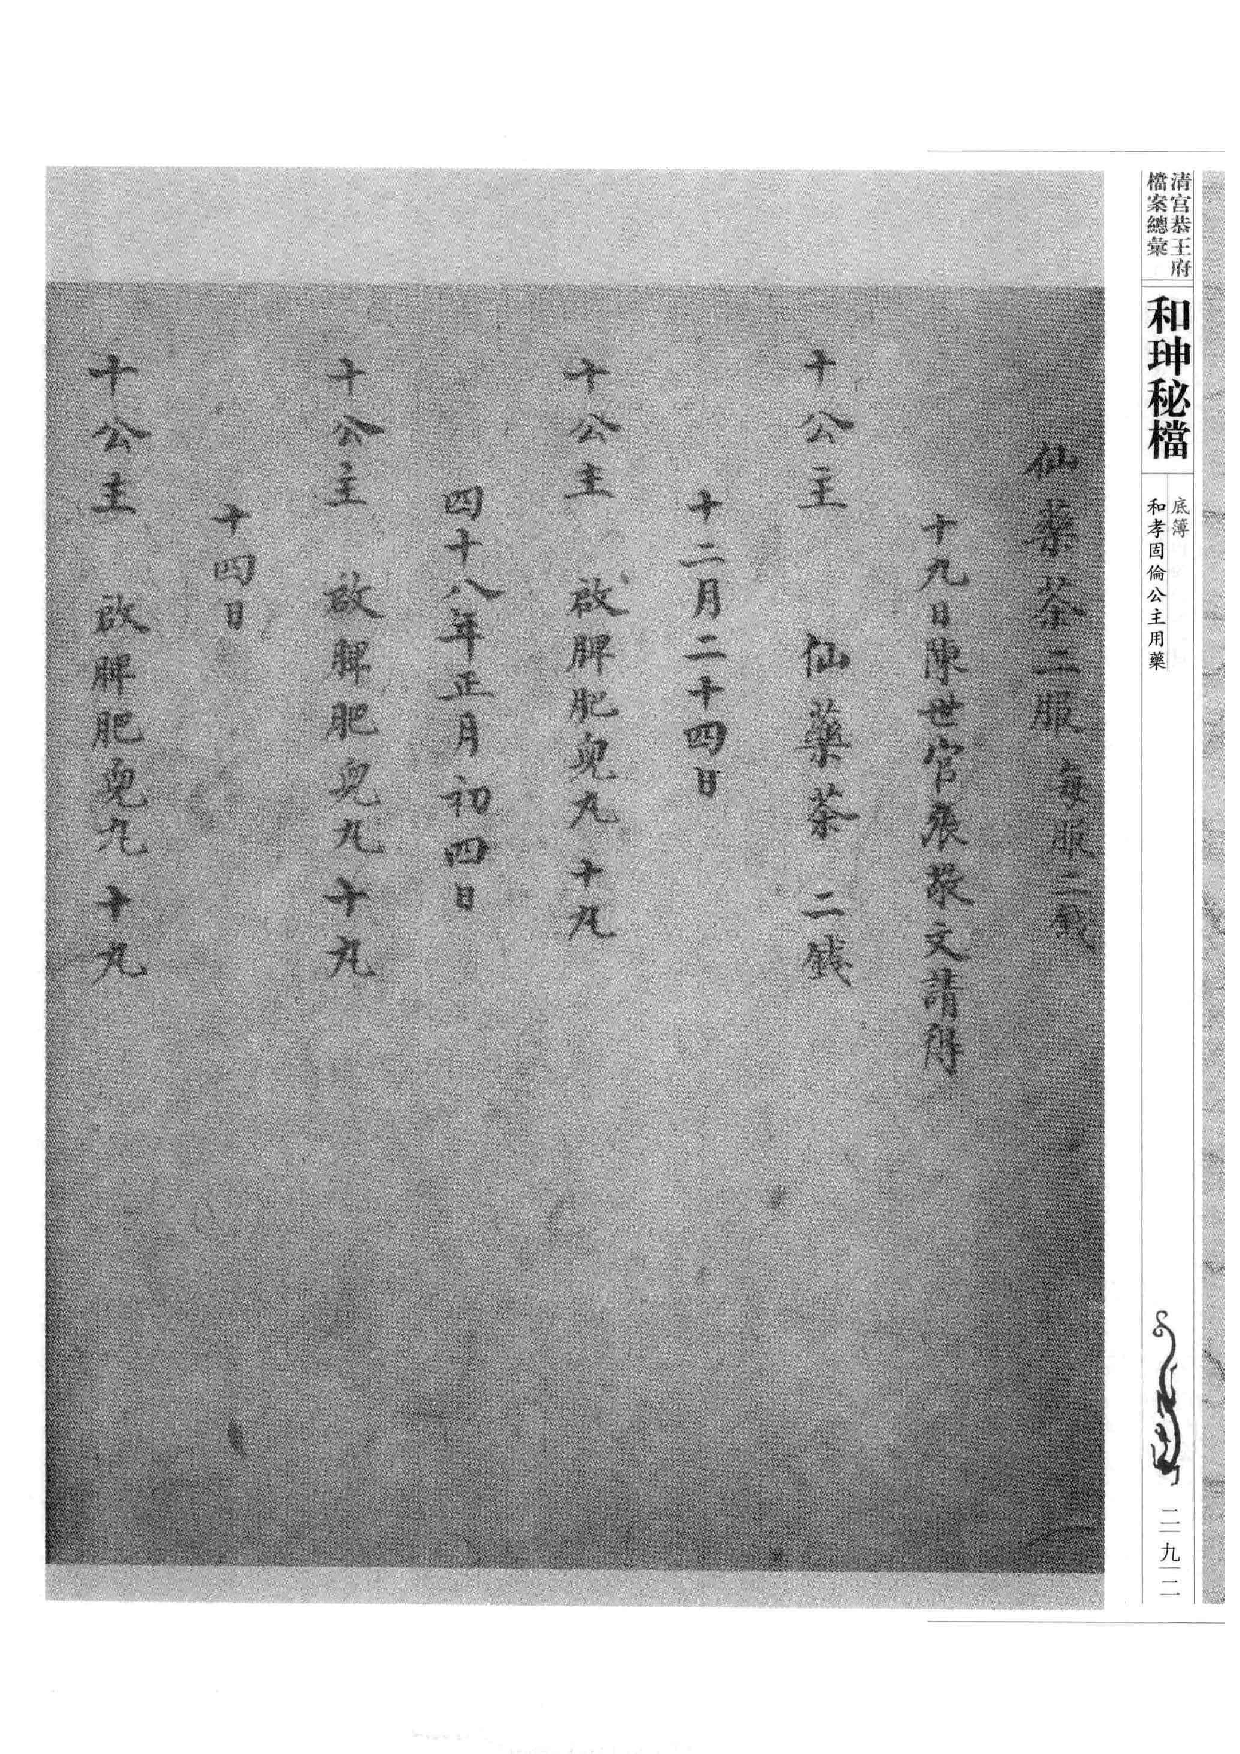 清宮恭王府
檔案總彙
和珅秘檔
底簿
和孝固倫公主用藥
二九二
仙藥茶二服每服二錢
十九日陳世官張敬文請得
十公主 仙藥茶二錢
十二月二十四日
十公主 啟脾肥兒丸十丸
四十八年正月初四日
十公主 啟脾肥兒丸十丸
十四日
十公主 啟脾肥兒丸十丸